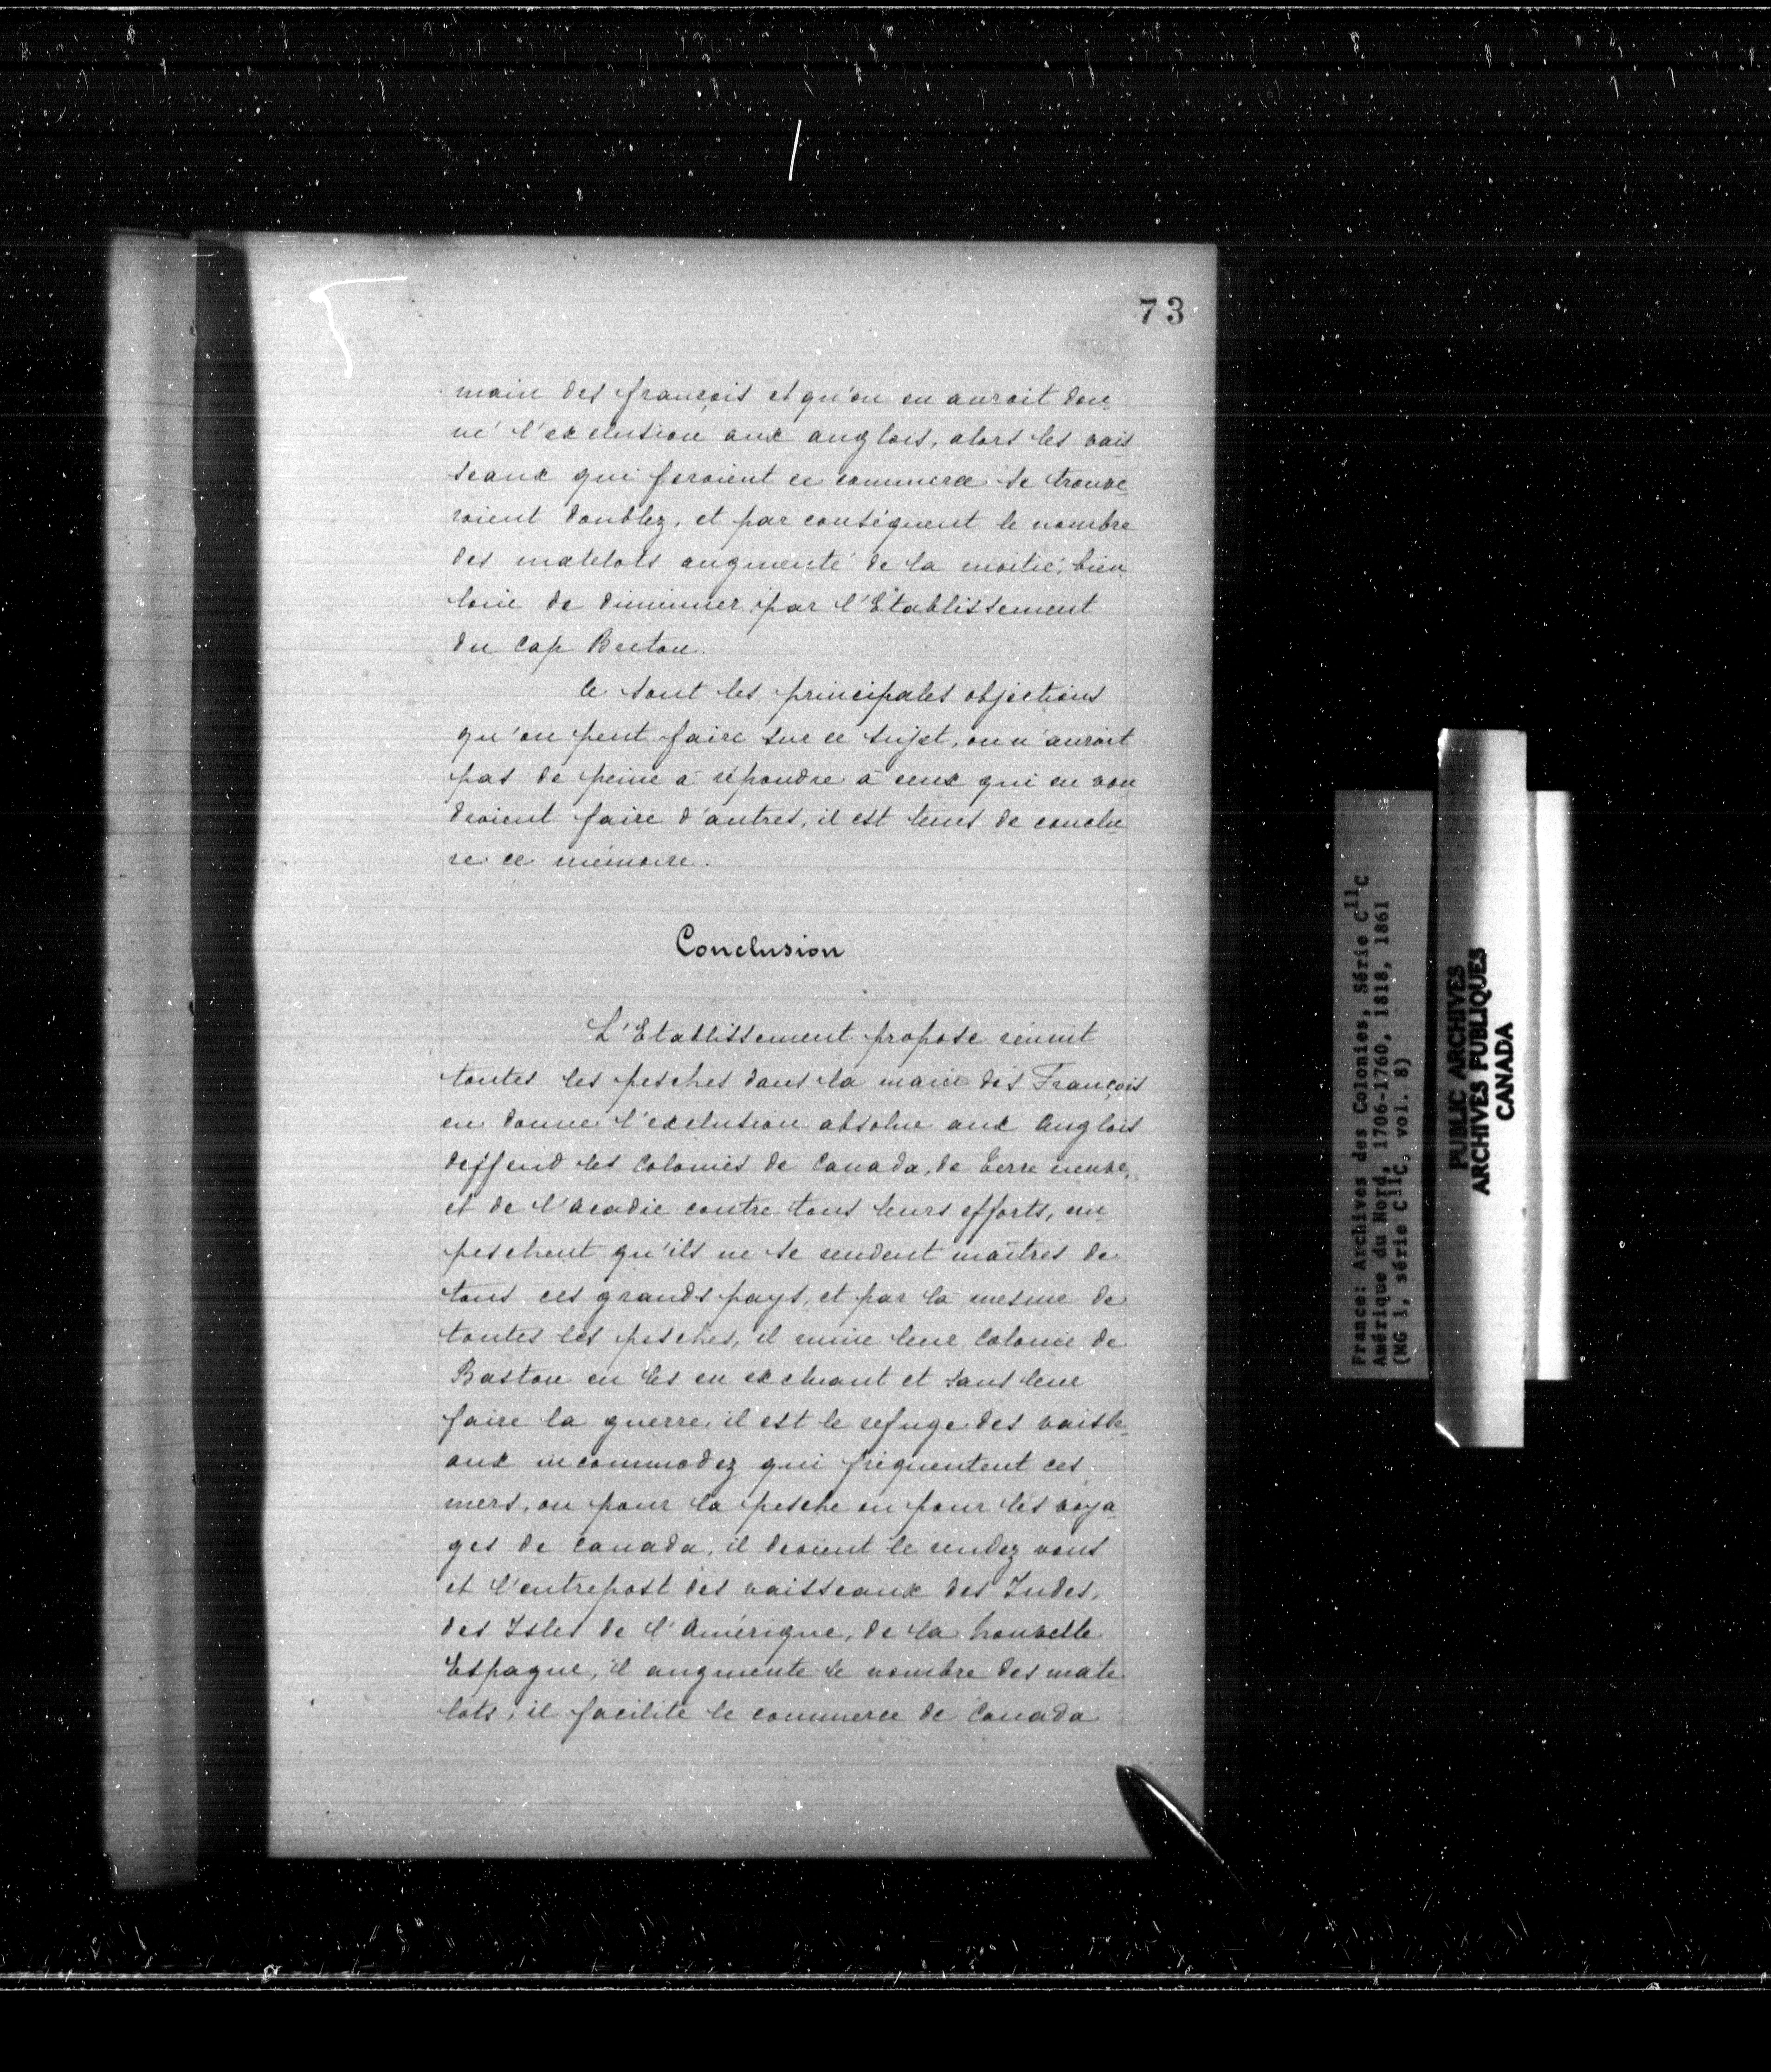 73
main des françois et qu'on en auroit don-
né l'exclusion aux anglois, alors les vais-
seaux qui feroient ce commerce se trouve-
roient doublez, et par conséquent le nombre
des matelots augmenté de la moitié, bien
loin de diminuer par l'Etablissement
du Cap Breton.
Ce sont les principales objections
qu'on peut faire sur ce sujet, on n'auroit
pas de peine à répondre à ceux qui en vou
droient faire d'autres, il est tems de conclu
re ce mémoire.
Conclusion
L'Etablissement propose réunit
toutes les pesches dans la main des François
en donne l'exclusion absolue aux Anglois
deffend les Colonies de Canada, de Terre neuve,
et de l'Acadie contre tous leurs efforts, em-
peschent qu'ils ne se rendent maîtres de
tous ces grands pays, et par là mesme de
toutes les pesches, il ruine leur Colonie de
Baston en les en excluant et sans leur
faire la guerre, il est le refuge des vaisse-
aux incommodez qui fréquentent ces
mers, ou pour la pesche ou pour les voya-
ges de Canada, il devient le rendez vous
et l'entrepost des vaisseaux des Indes,
des Isles de l'Amérique, de la Nouvelle
Espagne, il augmente le nombre des mate
lots, il facilite le commerce de Canada
France: Archives des Colonies, Série C11C
Amérique du Nord, 1706-1760, 1818, 1861
(MG 1, série C11C, vol. 8)
PUBLIC ARCHIVES
ARCHIVES PUBLIQUES
CANADA